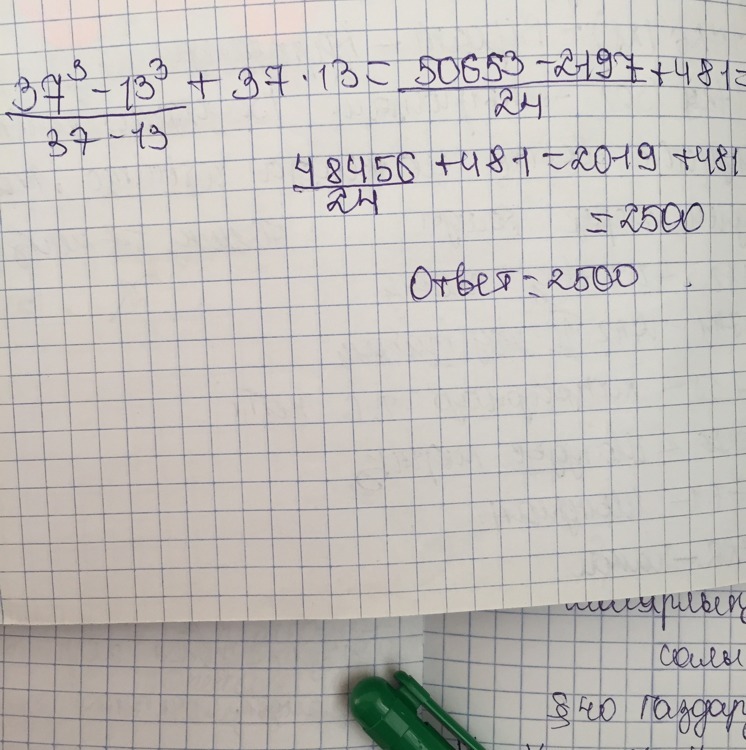 37³ - 13³ / 37 - 13 + 37 · 13 = 50653 - 2197 / 24 + 481 =
48456 / 24 + 481 = 2019 + 481
= 2500
Ответ = 2500
солы
§ 40 Газдар